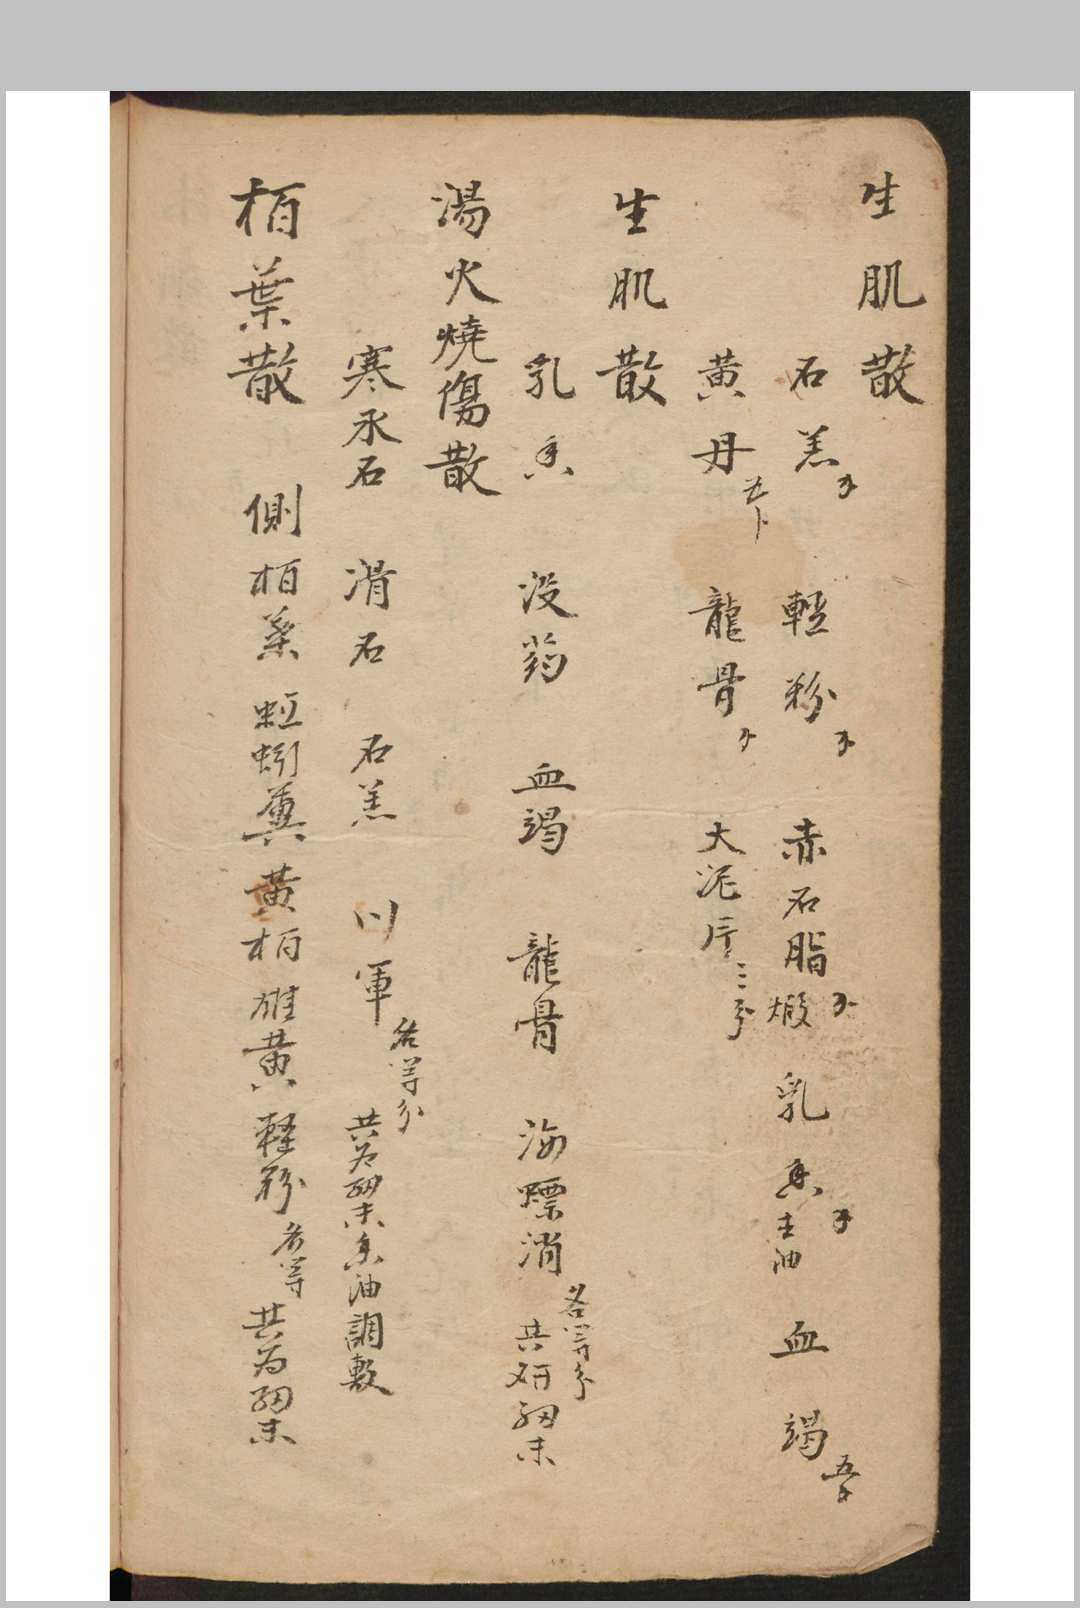 生肌散
石羔 輕粉 赤石脂 煅 乳香 去油 血竭
黄丹 龍骨 大泥片 三分
生肌散
乳香 没药 血竭 龍骨 海螵消 各等分 共研細末
湯火燒傷散
寒水石 滑石 石羔 川軍 各等分 共为細末香油調敷
栢葉散 側栢葉 蚯蚓糞 黄栢 雄黄 軽粉 各等 共为細末